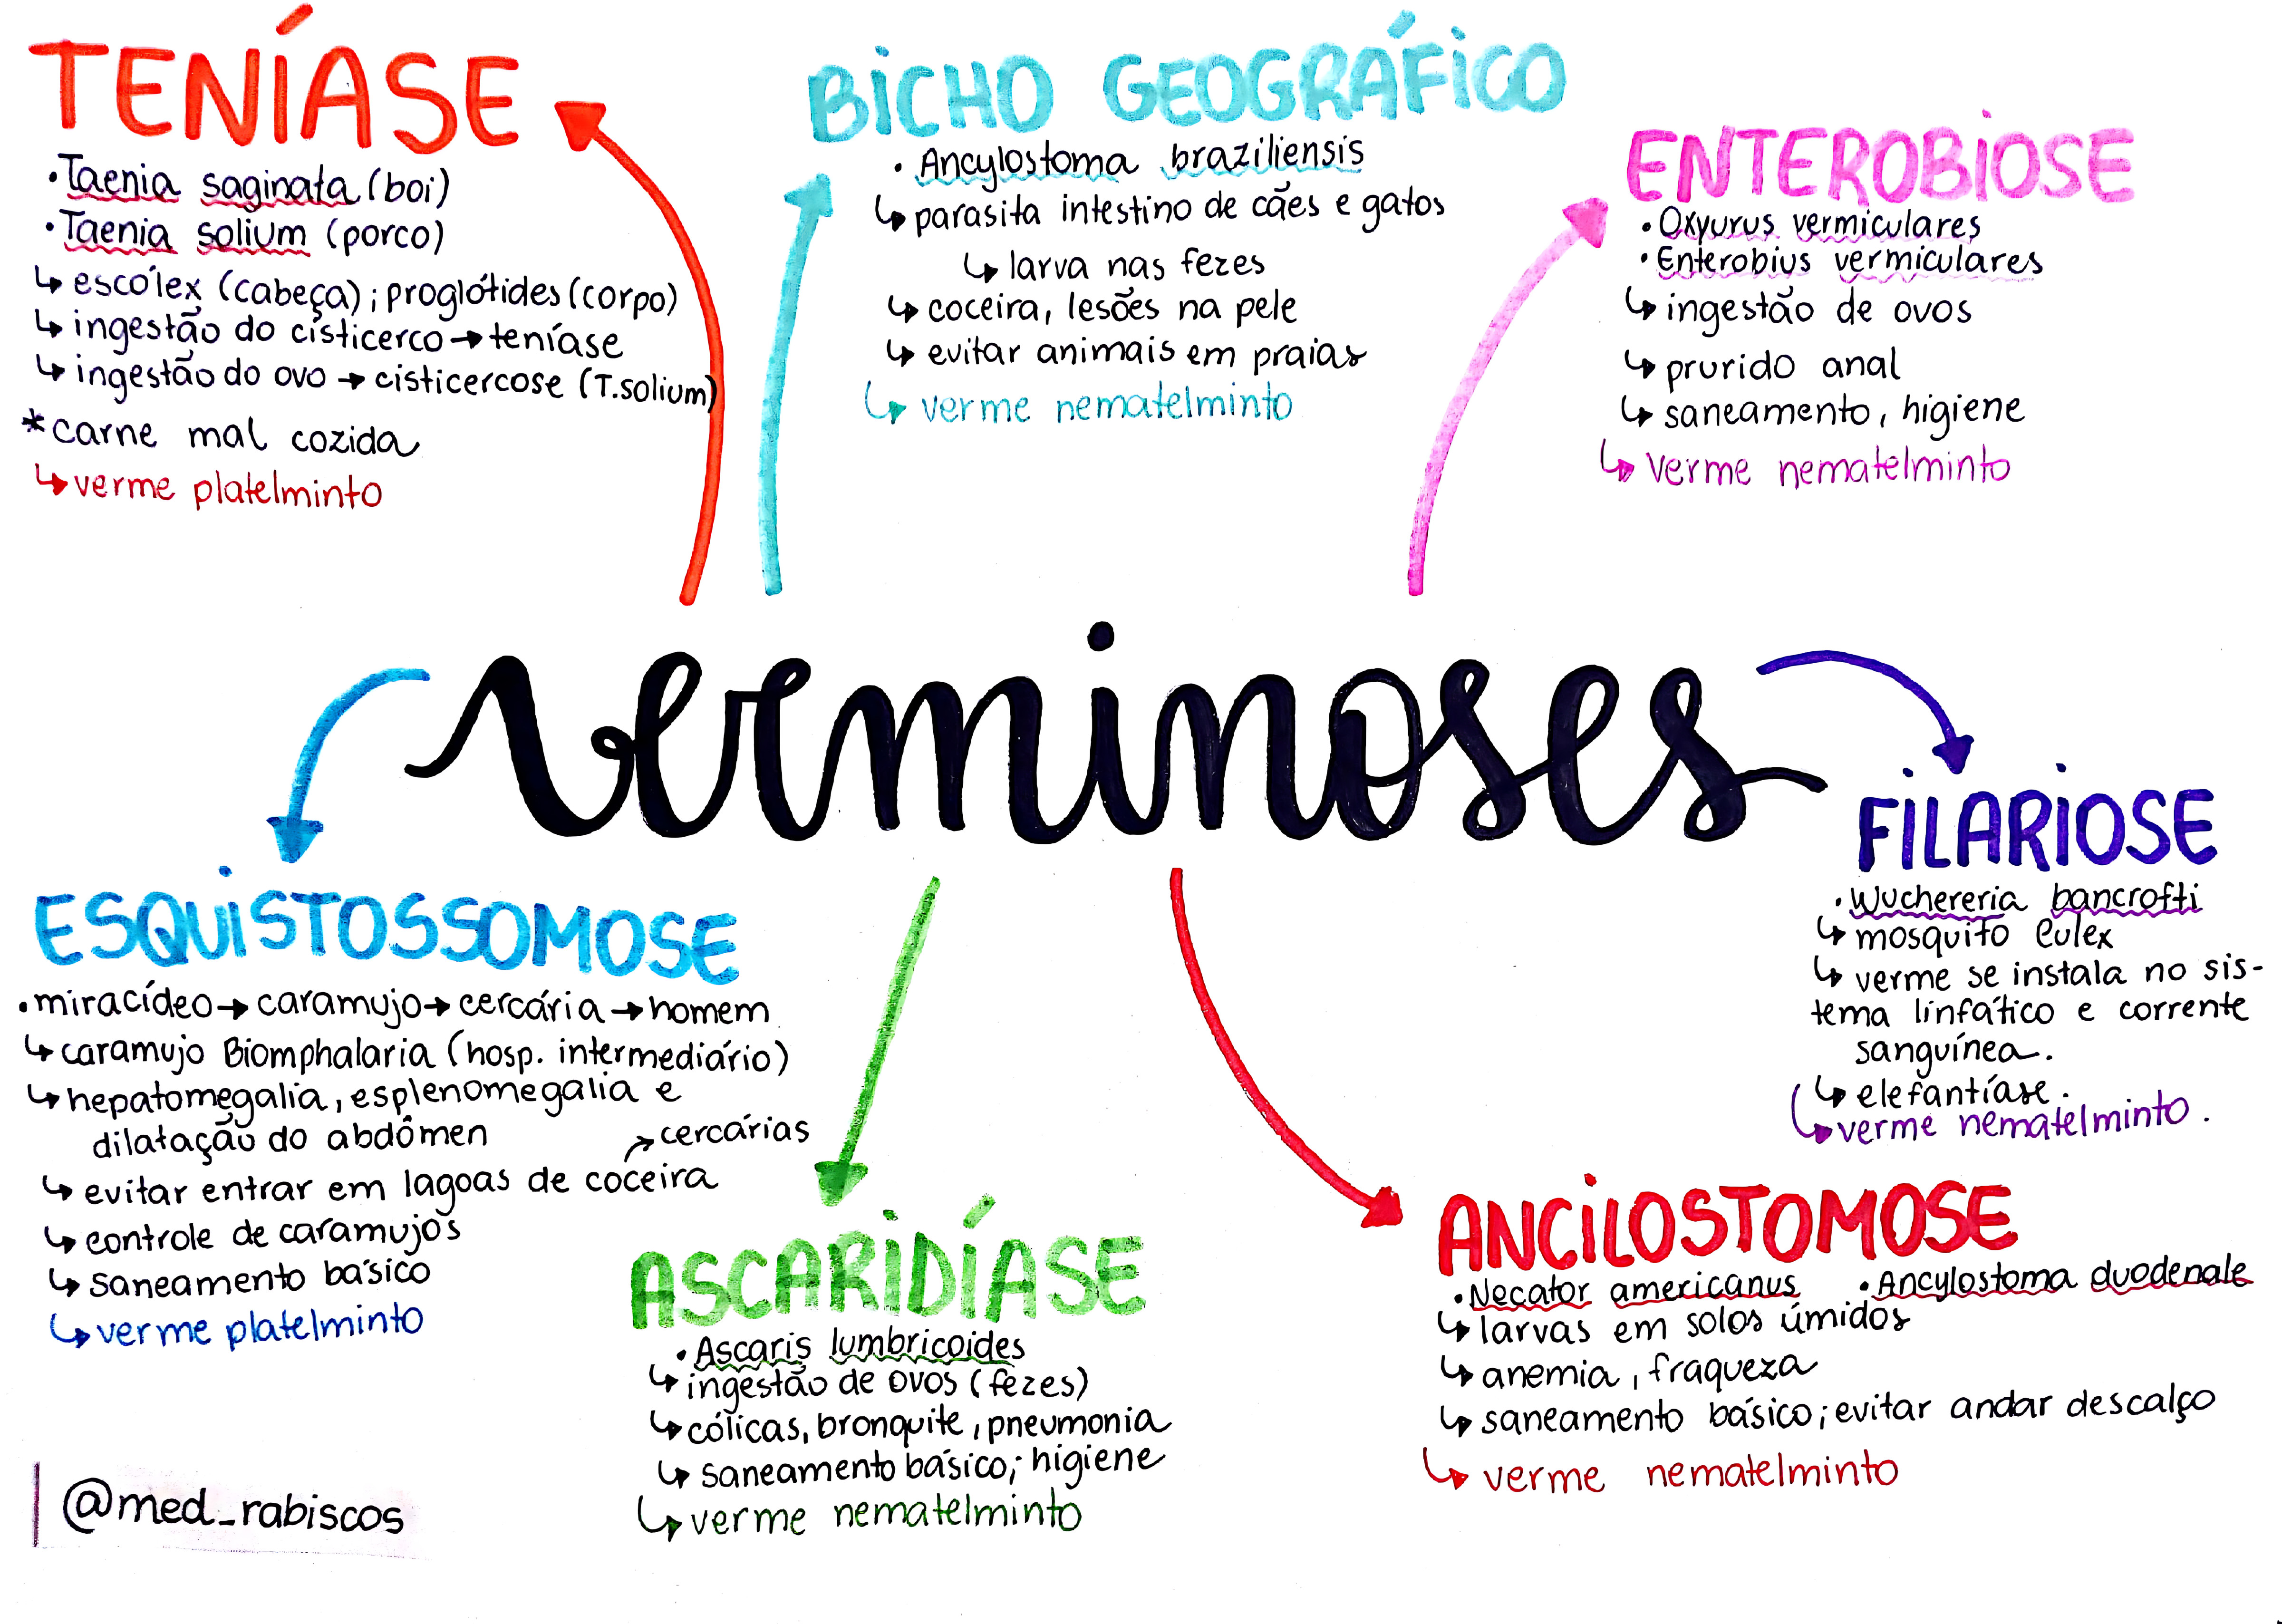 TENÍASE
• Taenia saginata (boi)
• Taenia solium (porco)
↳ escólex (cabeça); proglótides (corpo)
↳ ingestão do cisticerco → teníase
↳ ingestão do ovo → cisticercose (T.solium)
* carne mal cozida
↳ verme platelminto
BICHO GEOGRÁFICO
• Ancylostoma braziliensis
↳ parasita intestino de cães e gatos
↳ larva nas fezes
↳ coceira, lesões na pele
↳ evitar animais em praias
↳ verme nematelminto
ENTEROBIOSE
• Oxyurus vermiculares
• Enterobius vermiculares
↳ ingestão de ovos
↳ prurido anal
↳ saneamento, higiene
↳ verme nematelminto
verminoses
FILARIOSE
• Wuchereria bancrofti
↳ mosquito Culex
↳ verme se instala no sis-
tema linfático e corrente
sanguínea.
↳ elefantíase.
↳ verme nematelminto.
ESQUISTOSSOMOSE
• miracídeo → caramujo → cercária → homem
↳ caramujo Biomphalaria (hosp. intermediário)
↳ hepatomegalia, esplenomegalia e
dilatação do abdômen
→ cercárias
↳ evitar entrar em lagoas de coceira
↳ controle de caramujos
↳ saneamento básico
↳ verme platelminto
ASCARIDÍASE
• Ascaris lumbricoides
↳ ingestão de ovos (fezes)
↳ cólicas, bronquite, pneumonia
↳ saneamento básico; higiene
↳ verme nematelminto
ANCILOSTOMOSE
• Necator americanus • Ancylostoma duodenale
↳ larvas em solos úmidos
↳ anemia, fraqueza
↳ saneamento básico; evitar andar descalço
↳ verme nematelminto
@med_rabiscos